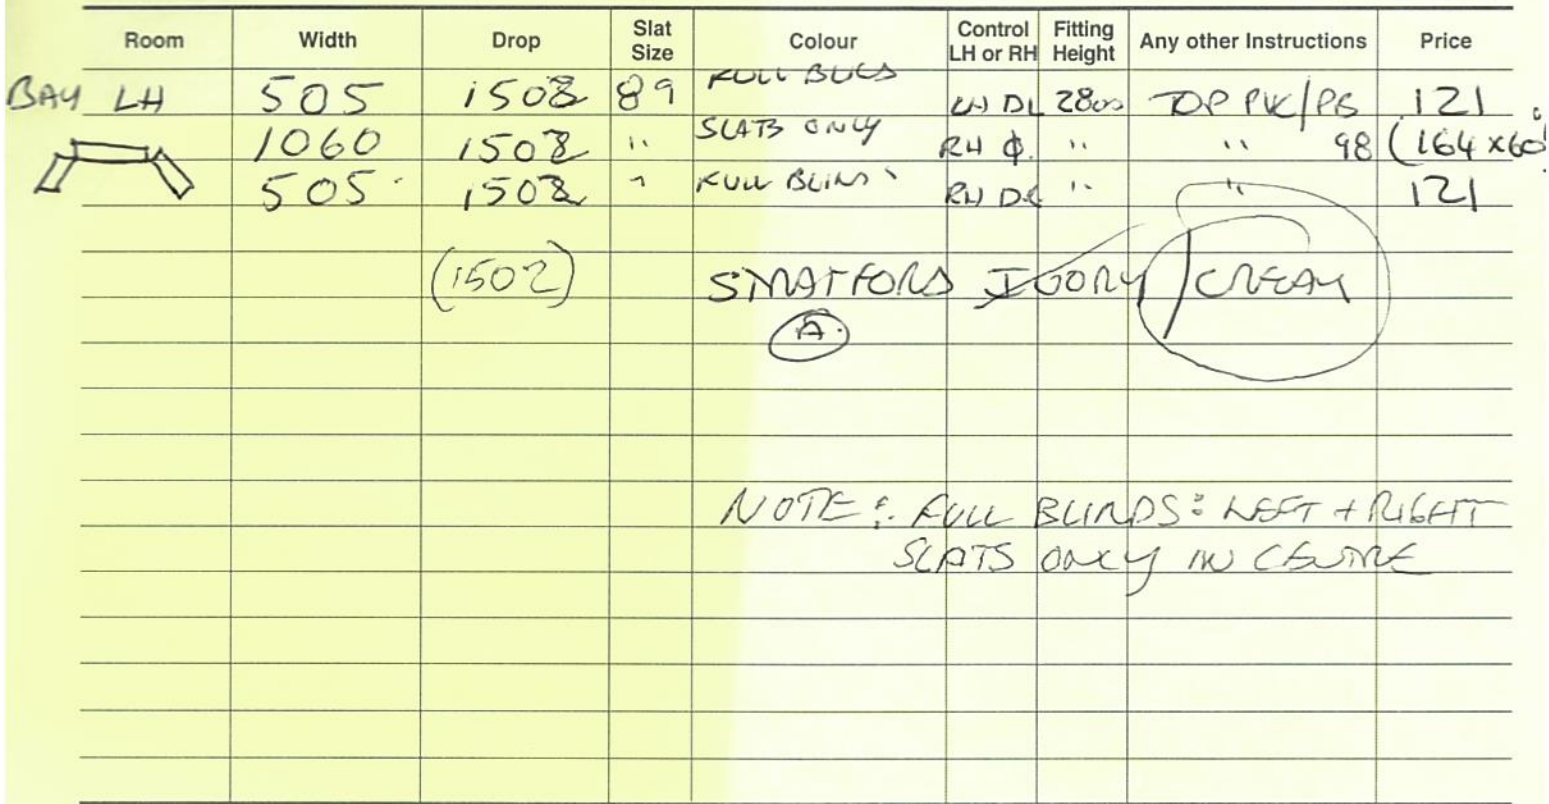 Room Width Drop Slat Size Colour Control LH or RH Fitting Height Any other Instructions Price
BAY LH 505 1502 89 FULL BLINDS LH DL 2800 TOP FIX/PB 121
1060 1502 " SLATS ONLY RH " " 98 (164 x 60
505 1502 " FULL BLINDS RH DL " " 121
(1502) STRATFORD IVORY / CREAM
A
NOTE: FULL BLINDS: LEFT + RIGHT
SLATS ONLY IN CENTRE